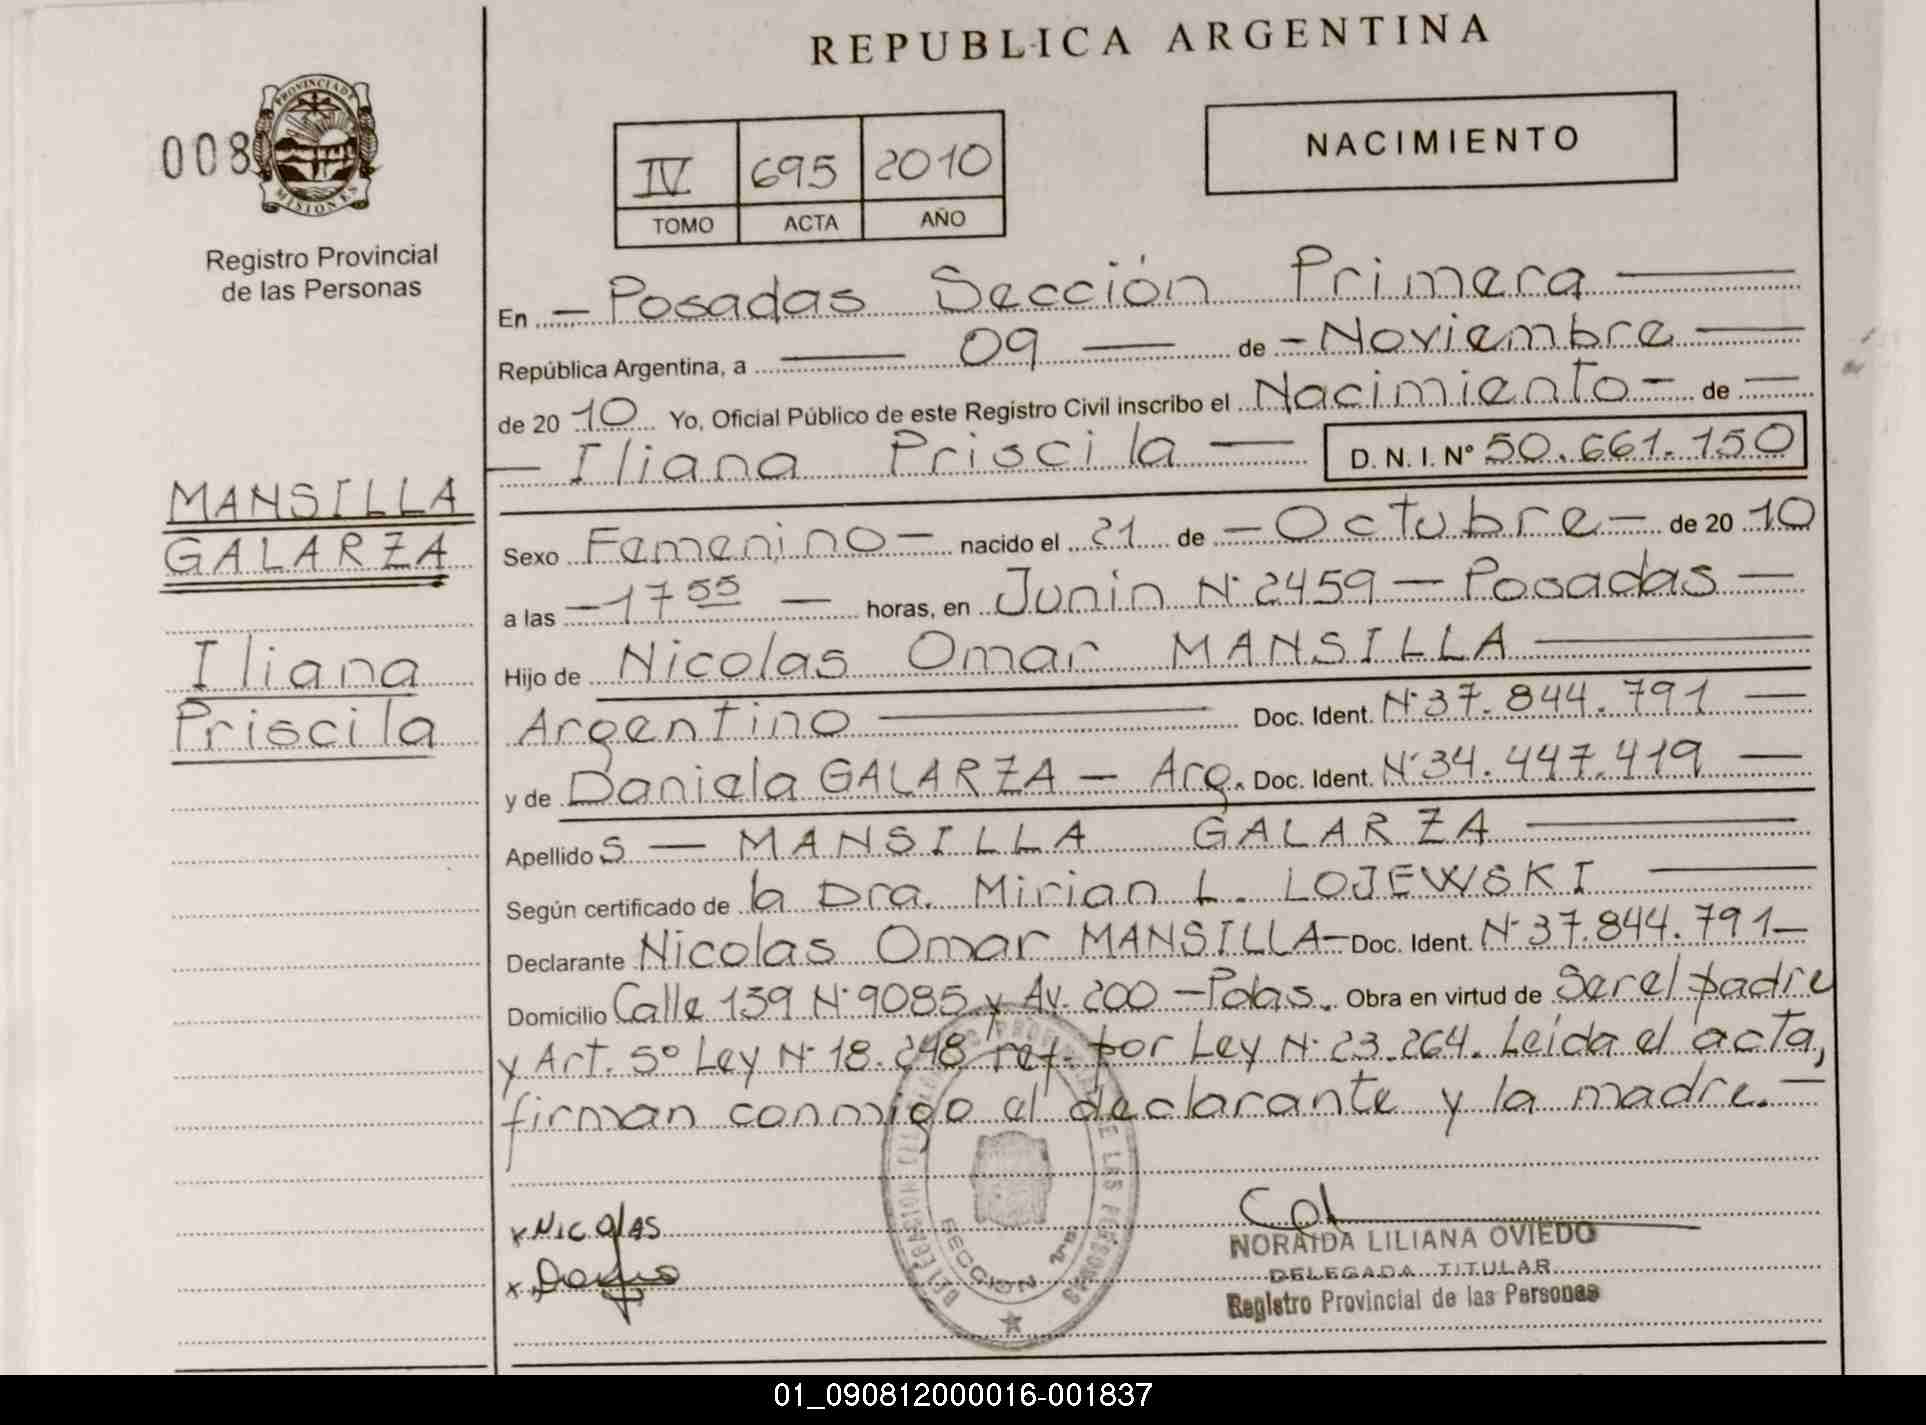 REPUBLICA ARGENTINA
008
PROVINCIA DE
MISIONES
Registro Provincial
de las Personas
IV 695 2010
TOMO ACTA AÑO
NACIMIENTO
En - Posadas Sección Primera
República Argentina, a 09 de - Noviembre
de 2010 Yo, Oficial Público de este Registro Civil inscribo el Nacimiento - de
Iliana Priscila D. N. I. N° 50.661.150
MANSILLA
GALARZA
Iliana
Priscila
Sexo Femenino - nacido el 21 de - Octubre - de 2010
a las - 17 55 - horas, en Junin N° 2459 - Posadas -
Hijo de Nicolas Omar MANSILLA
Argentino Doc. Ident. N° 37.844.791
y de Daniela GALARZA - Arg. Doc. Ident. N° 34.447.419
Apellido s - MANSILLA GALARZA
Según certificado de la Dra. Mirian L. LOJEWSKI
Declarante Nicolas Omar MANSILLA - Doc. Ident. N° 37.844.791 -
Domicilio Calle 139 N° 9085 y Av. 200 - Pdas. Obra en virtud de Ser el padre
y Art. 5° Ley N° 18.248 ref. por Ley N° 23.264. Leida el acta,
firman conmigo el declarante y la madre. -
x NICOLAS
SECCION 1ra
NORAIDA LILIANA OVIEDO
DELEGADA TITULAR
Registro Provincial de las Personas
01_090812000016-001837